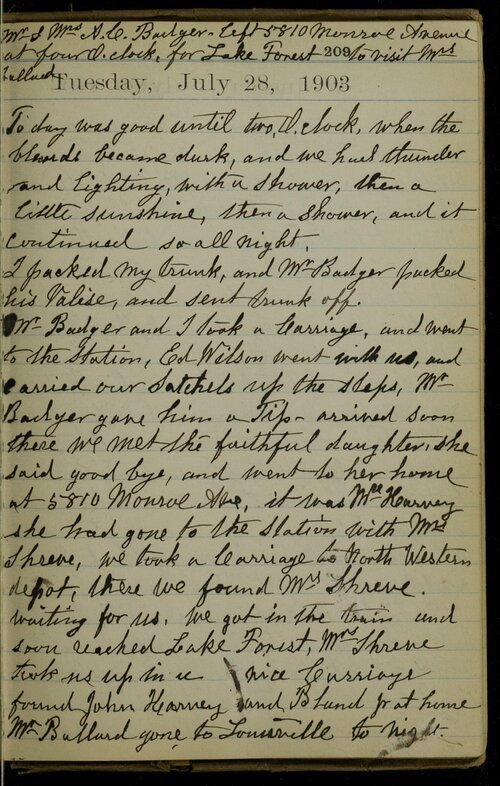 Mr & Mrs A.C. Badger. Left 5810 Monroe Avenue
at four O.clock, for Lake Forest 209 to visit Mrs
Ballard
Tuesday, July 28, 1903
To day was good until two, O.clock, when the
clouds became dark, and we had thunder
and Lighting, with a shower, then a
little sunshine, then a shower, and it
continued so all night.
I packed my trunk, and Mr Badger packed
his Valise, and sent trunk off.
Mr Badger and I took a Carriage, and went
to the Station, Ed Wilson went with us, and
carried our Satchels up the steps, Mr
Badger gave him a Tip - arrived soon
there we met the faithful daughter, she
said good bye, and went to her home
at 5810 Monroe Ave, it was Mrs Harvey
she had gone to the Station with Mrs
Shreve, we took a Carriage to North Western
depot, there we found Mrs Shreve.
waiting for us, we got in the train and
soon reached Lake Forest, Mrs Shreve
took us up in a nice Carriage
found John Harvey and Bland Jr at home
Mr Ballard gone to Louisville to night.